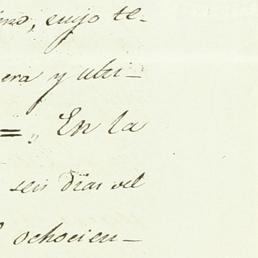 ino, cuyo te-
era y ulti-
= „ En la
seis dias del
ochocien-